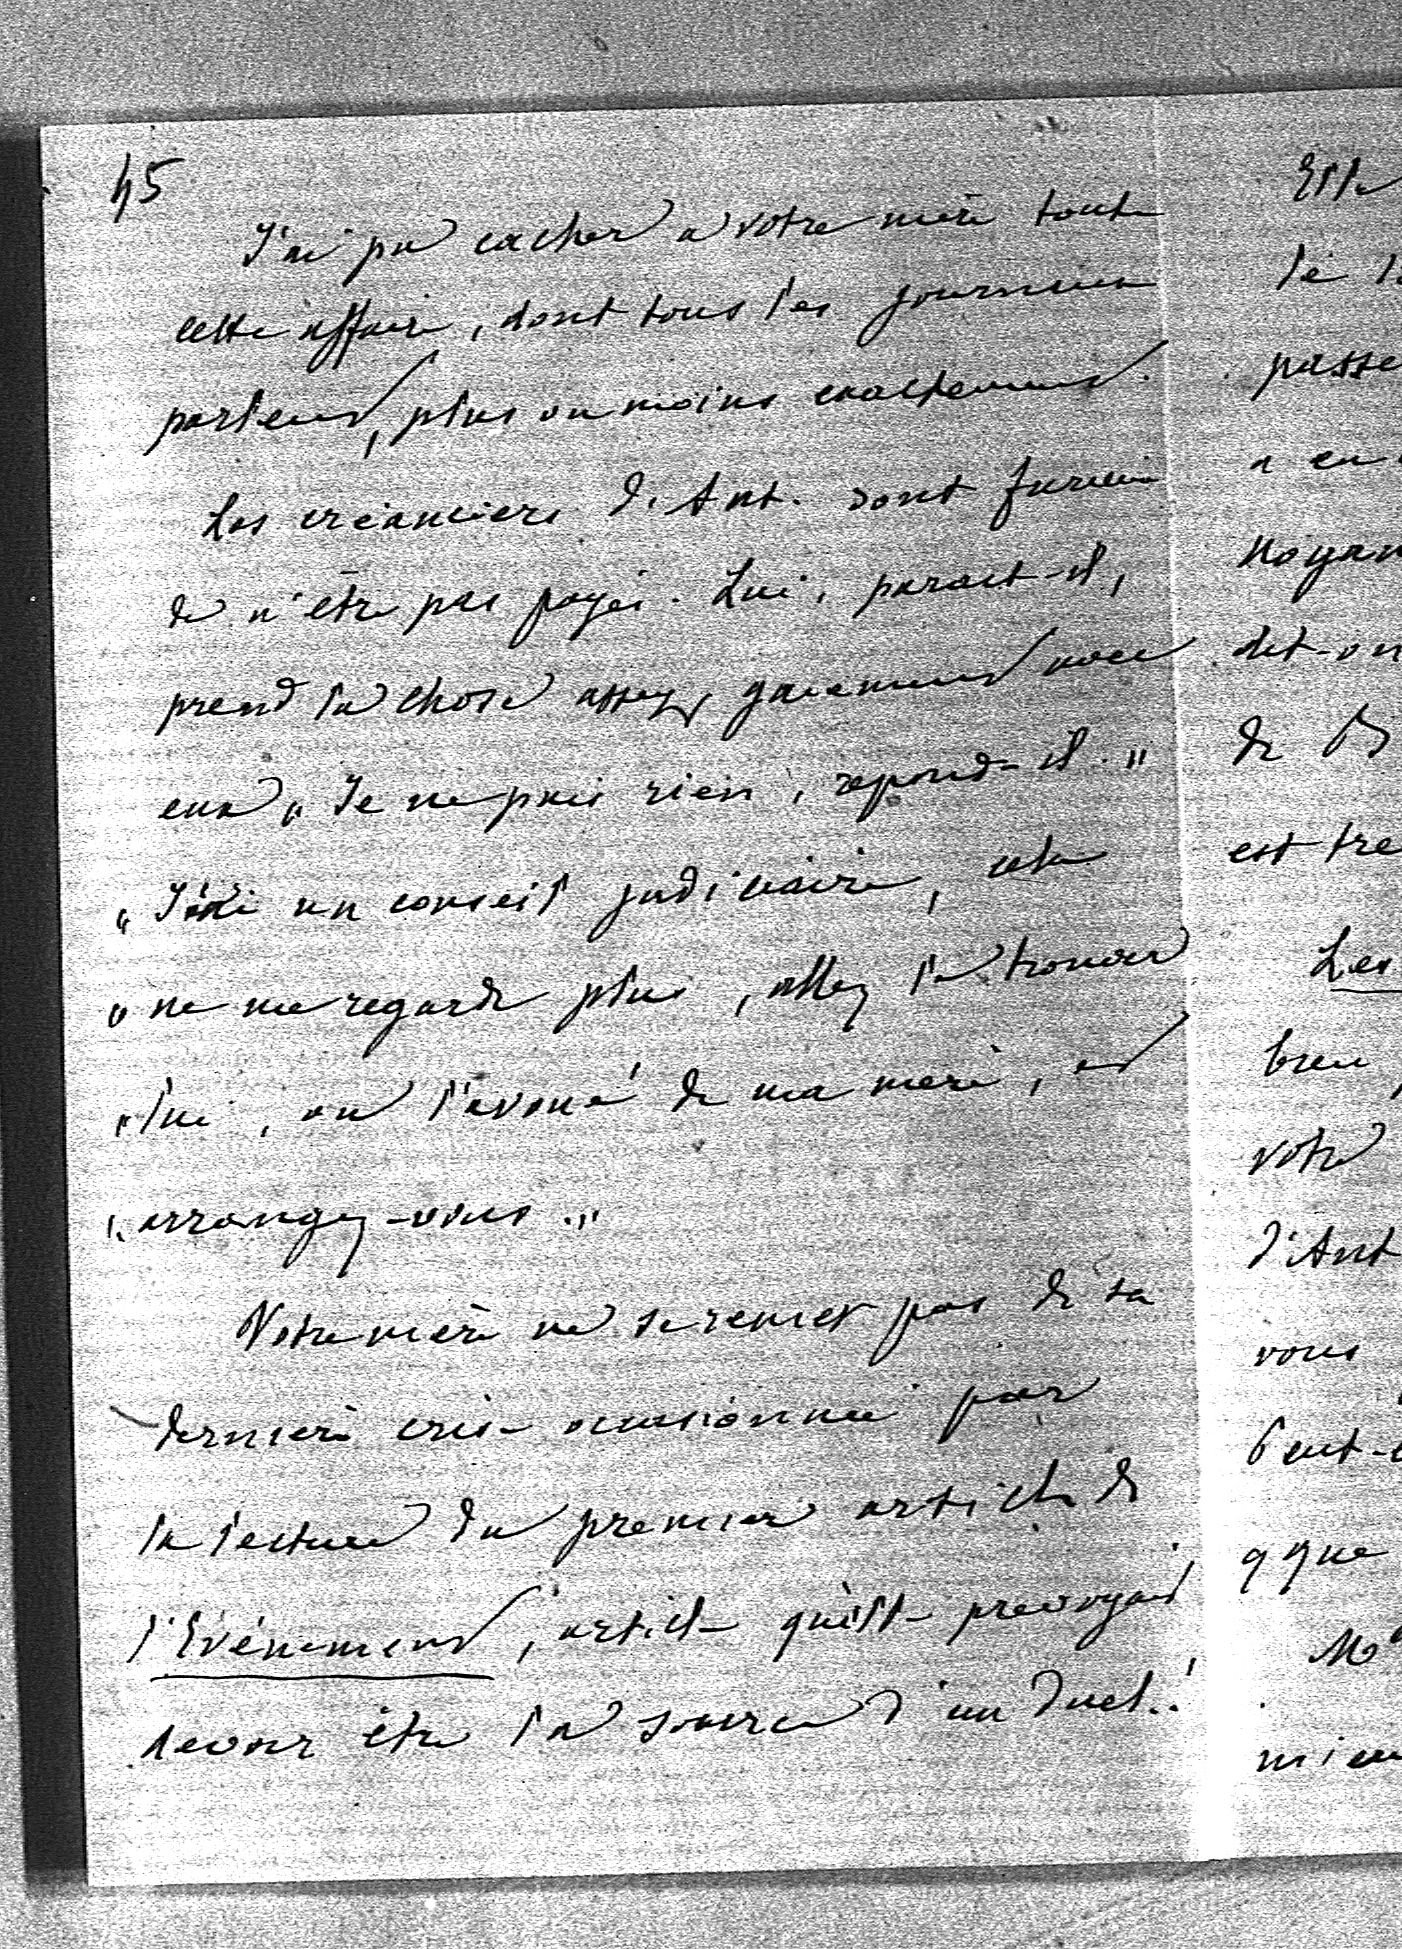 45
J'ai pu cacher a votre mère toute
cette affaire, dont tous les journaux
parlent, plus ou moins exactement.
Les créanciers d'Ant. sont furieux
de n'être pas payés. Lui, parait-il,
prend la chose assez gaiement avec
eux „ Je ne puis rien, repond-il. "
„ J'ai un conseil judiciaire, cela
„ ne me regarde plus, allez le trouver
„ lui, ou l'avoué de ma mère, et
„ arrangez-vous. "
Votre mère ne se remet pas de sa
dernière crise occasionnée par
la lecture du premier article de
l'Evénement, article qu'elle prevoyait
devoir être la source d'un duel.!
Elle
le
passe
a en
Noyan
dit-on
de B
est tre
Les
bien
votre
d'Ant
vous
Peut-ê
que
M
mieu